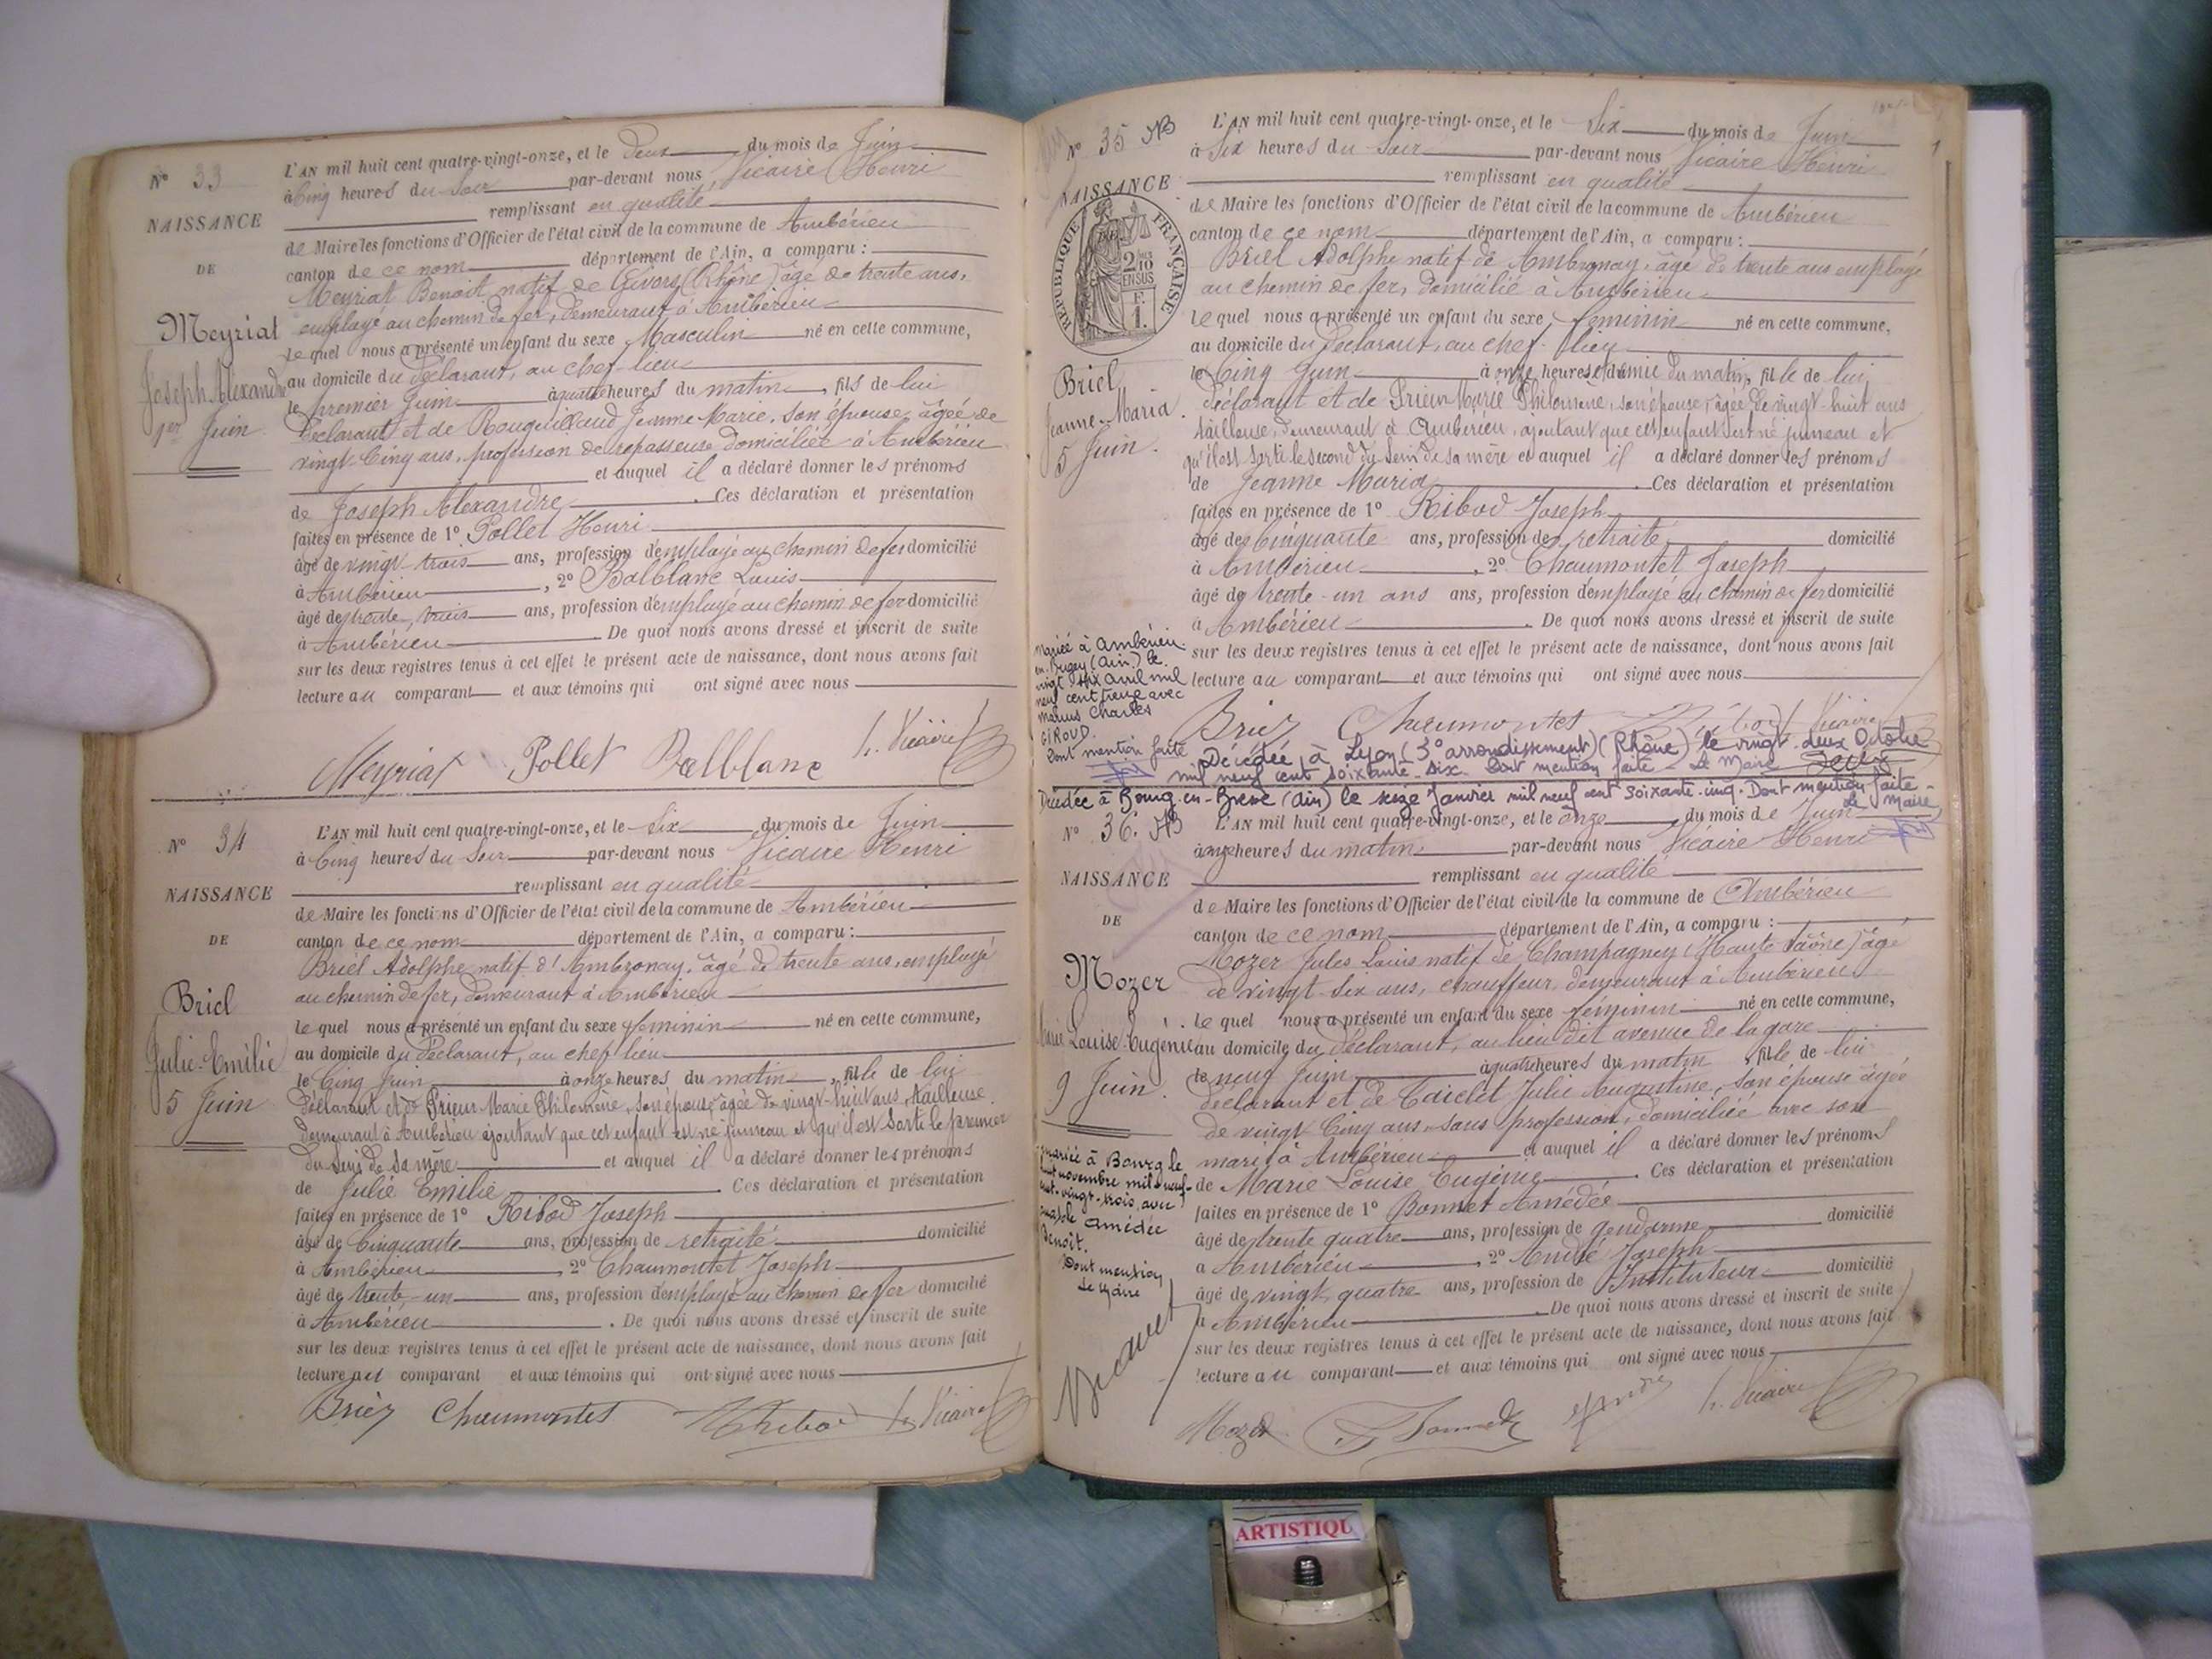 N° 33
NAISSANCE
DE
Meyriat
Joseph Alexandre
1er Juin
L'AN mil huit cent quatre-vingt-onze, et le deux du mois de Juin
à Cinq heures du Soir par-devant nous Vicaire Henri
remplissant en qualité
de Maire les fonctions d'Officier de l'état civil de la commune de Ambérieu
canton de ce nom département de l'Ain, a comparu :
Meyriat Benoit natif de Givors (Rhône) âgé de trente ans,
employé au chemin de fer, demeurant à Ambérieu
lequel nous a présenté un enfant du sexe Masculin né en cette commune,
au domicile du déclarant, au chef-lieu
le premier Juin à quatre heures du matin, fils de lui
déclarant et de Rougeillaud Jeanne Marie, son épouse, âgée de
vingt Cinq ans, profession de repasseuse domiciliée à Ambérieu
et auquel il a déclaré donner les prénoms
de Joseph Alexandre. Ces déclaration et présentation
faites en présence de 1° Pollet Henri
âgé de vingt-trois ans, profession d'employé au chemin de fer domicilié
à Ambérieu, 2° Balblanc Louis
âgé de trente trois ans, profession d'employé au chemin de fer domicilié
à Ambérieu. De quoi nous avons dressé et inscrit de suite
sur les deux registres tenus à cet effet le présent acte de naissance, dont nous avons fait
lecture au comparant et aux témoins qui ont signé avec nous
Meyriat Pollet Balblanc h. Vicaire
N° 34
NAISSANCE
DE
Briel
Julie-Emilie
5 Juin
L'AN mil huit cent quatre-vingt-onze, et le Six du mois de Juin
à Cinq heures du Soir par-devant nous Vicaire Henri
remplissant en qualité
de Maire les fonctions d'Officier de l'état civil de la commune de Ambérieu
canton de ce nom département de l'Ain, a comparu :
Briel Adolphe natif d'Ambronay, âgé de trente ans, employé
au chemin de fer, demeurant à Ambérieu
lequel nous a présenté un enfant du sexe féminin né en cette commune,
au domicile du déclarant, au chef lieu
le Cinq Juin à onze heures du matin, fille de lui
déclarant et de Prieur Marie Philomène, son épouse, âgée de vingt-huit ans, tailleuse
demeurant à Ambérieu ajoutant que cet enfant est né jumeau et qu'il est sorti le premier
du sein de sa mère et auquel il a déclaré donner les prénoms
de Julie Emilie. Ces déclaration et présentation
faites en présence de 1° Ribod Joseph
âgé de Cinquante ans, profession de retraité domicilié
à Ambérieu, 2° Chaumontet Joseph
âgé de trente-un ans, profession d'employé au chemin de fer domicilié
à Ambérieu. De quoi nous avons dressé et inscrit de suite
sur les deux registres tenus à cet effet le présent acte de naissance, dont nous avons fait
lecture au comparant et aux témoins qui ont signé avec nous
Briel Chaumontet Ribod h. Vicaire
N° 35
NAISSANCE
DE
RÉPUBLIQUE FRANÇAISE
2/10 EN SUS
F. 1.
Briel
Jeanne-Maria
5 Juin.
L'AN mil huit cent quatre-vingt-onze, et le Six du mois de Juin
à Six heures du Soir par-devant nous Vicaire Henri
remplissant en qualité
de Maire les fonctions d'Officier de l'état civil de la commune de Ambérieu
canton de ce nom département de l'Ain, a comparu :
Briel Adolphe natif de Ambronay, âgé de trente ans employé
au chemin de fer, domicilié à Ambérieu
lequel nous a présenté un enfant du sexe féminin né en cette commune,
au domicile du déclarant, au chef-lieu
le Cinq Juin à onze heures et demie du matin, fille de lui
déclarant et de Prieur Marie Philomène, son épouse, âgée de vingt-huit ans
tailleuse, demeurant à Ambérieu, ajoutant que cet enfant est né jumeau et
qu'il est sorti le second du sein de sa mère et auquel il a déclaré donner les prénoms
de Jeanne Maria. Ces déclaration et présentation
faites en présence de 1° Ribod Joseph
âgé de Cinquante ans, profession de retraité domicilié
à Ambérieu, 2° Chaumontet Joseph
âgé de trente-un ans ans, profession d'employé au chemin de fer domicilié
à Ambérieu. De quoi nous avons dressé et inscrit de suite
sur les deux registres tenus à cet effet le présent acte de naissance, dont nous avons fait
lecture au comparant et aux témoins qui ont signé avec nous
Briel Chaumontet Ribod Vicaire
Mariée à Ambérieu
en-Bugey (Ain) le
vingt six avril mil
neuf cent treize avec
Marius Charles
GIROUD.
Dont mention faite
Décédée à Lyon (3° arrondissement) (Rhône) le vingt-deux Octobre
mil neuf cent soixante-six. Dont mention faite. Le Maire
Décédée à Bourg-en-Bresse (Ain) le seize Janvier mil neuf cent soixante-cinq. Dont mention faite
Le Maire
N° 36.
NAISSANCE
DE
Mozer
Marie Louise-Eugénie
9 Juin.
L'AN mil huit cent quatre-vingt-onze, et le onze du mois de Juin
à onze heures du matin par-devant nous Vicaire Henri
remplissant en qualité
de Maire les fonctions d'Officier de l'état civil de la commune de Ambérieu
canton de ce nom département de l'Ain, a comparu :
Mozer Jules Louis natif de Champagney (Haute Saône) âgé
de vingt-six ans, chauffeur demeurant à Ambérieu
lequel nous a présenté un enfant du sexe féminin né en cette commune,
au domicile du déclarant, au lieu dit avenue de la gare
le neuf Juin à quatre heures du matin, fille de lui
déclarant et de Taiclet Julie Augustine, son épouse âgée
de vingt Cinq ans sans profession, domiciliée avec son
mari à Ambérieu et auquel il a déclaré donner les prénoms
de Marie Louise Eugénie. Ces déclaration et présentation
faites en présence de 1° Bonnet Amédée
âgé de trente quatre ans, profession de gendarme domicilié
à Ambérieu, 2° André Joseph
âgé de vingt quatre ans, profession de Instituteur domicilié
à Ambérieu. De quoi nous avons dressé et inscrit de suite
sur les deux registres tenus à cet effet le présent acte de naissance, dont nous avons fait
lecture au comparant et aux témoins qui ont signé avec nous
Mozer Bonnet André h. Vicaire
mariée à Bourg le
novembre mil neuf-
cent-vingt-trois avec
Amédée
Benoît.
Dont mention
Le Maire
ARTISTIQU